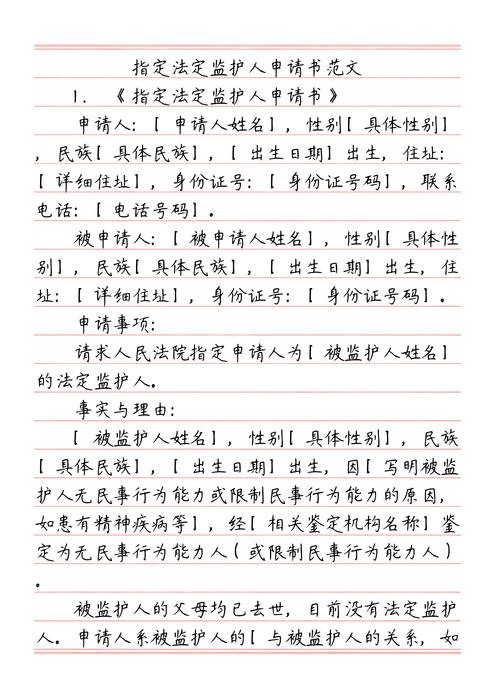 指定法定监护人申请书范文
1. 《指定法定监护人申请书》
申请人:[ 申请人姓名], 性别[ 具体性别]
, 民族[ 具体民族], [ 出生日期] 出生, 住址:
[ 详细住址], 身份证号:[ 身份证号码], 联系
电话:[ 电话号码]。
被申请人:[ 被申请人姓名], 性别[ 具体性
别], 民族[ 具体民族], [ 出生日期] 出生, 住
址:[ 详细住址], 身份证号:[ 身份证号码]。
申请事项:
请求人民法院指定申请人为[ 被监护人姓名]
的法定监护人。
事实与理由:
[ 被监护人姓名], 性别[ 具体性别], 民族
[ 具体民族], [ 出生日期] 出生, 因[ 写明被监
护人无民事行为能力或限制民事行为能力的原因,
如患有精神疾病等], 经[ 相关鉴定机构名称] 鉴
定为无民事行为能力人(或限制民事行为能力人)
。
被监护人的父母均已去世, 目前没有法定监护
人。申请人系被监护人的[ 与被监护人的关系, 如